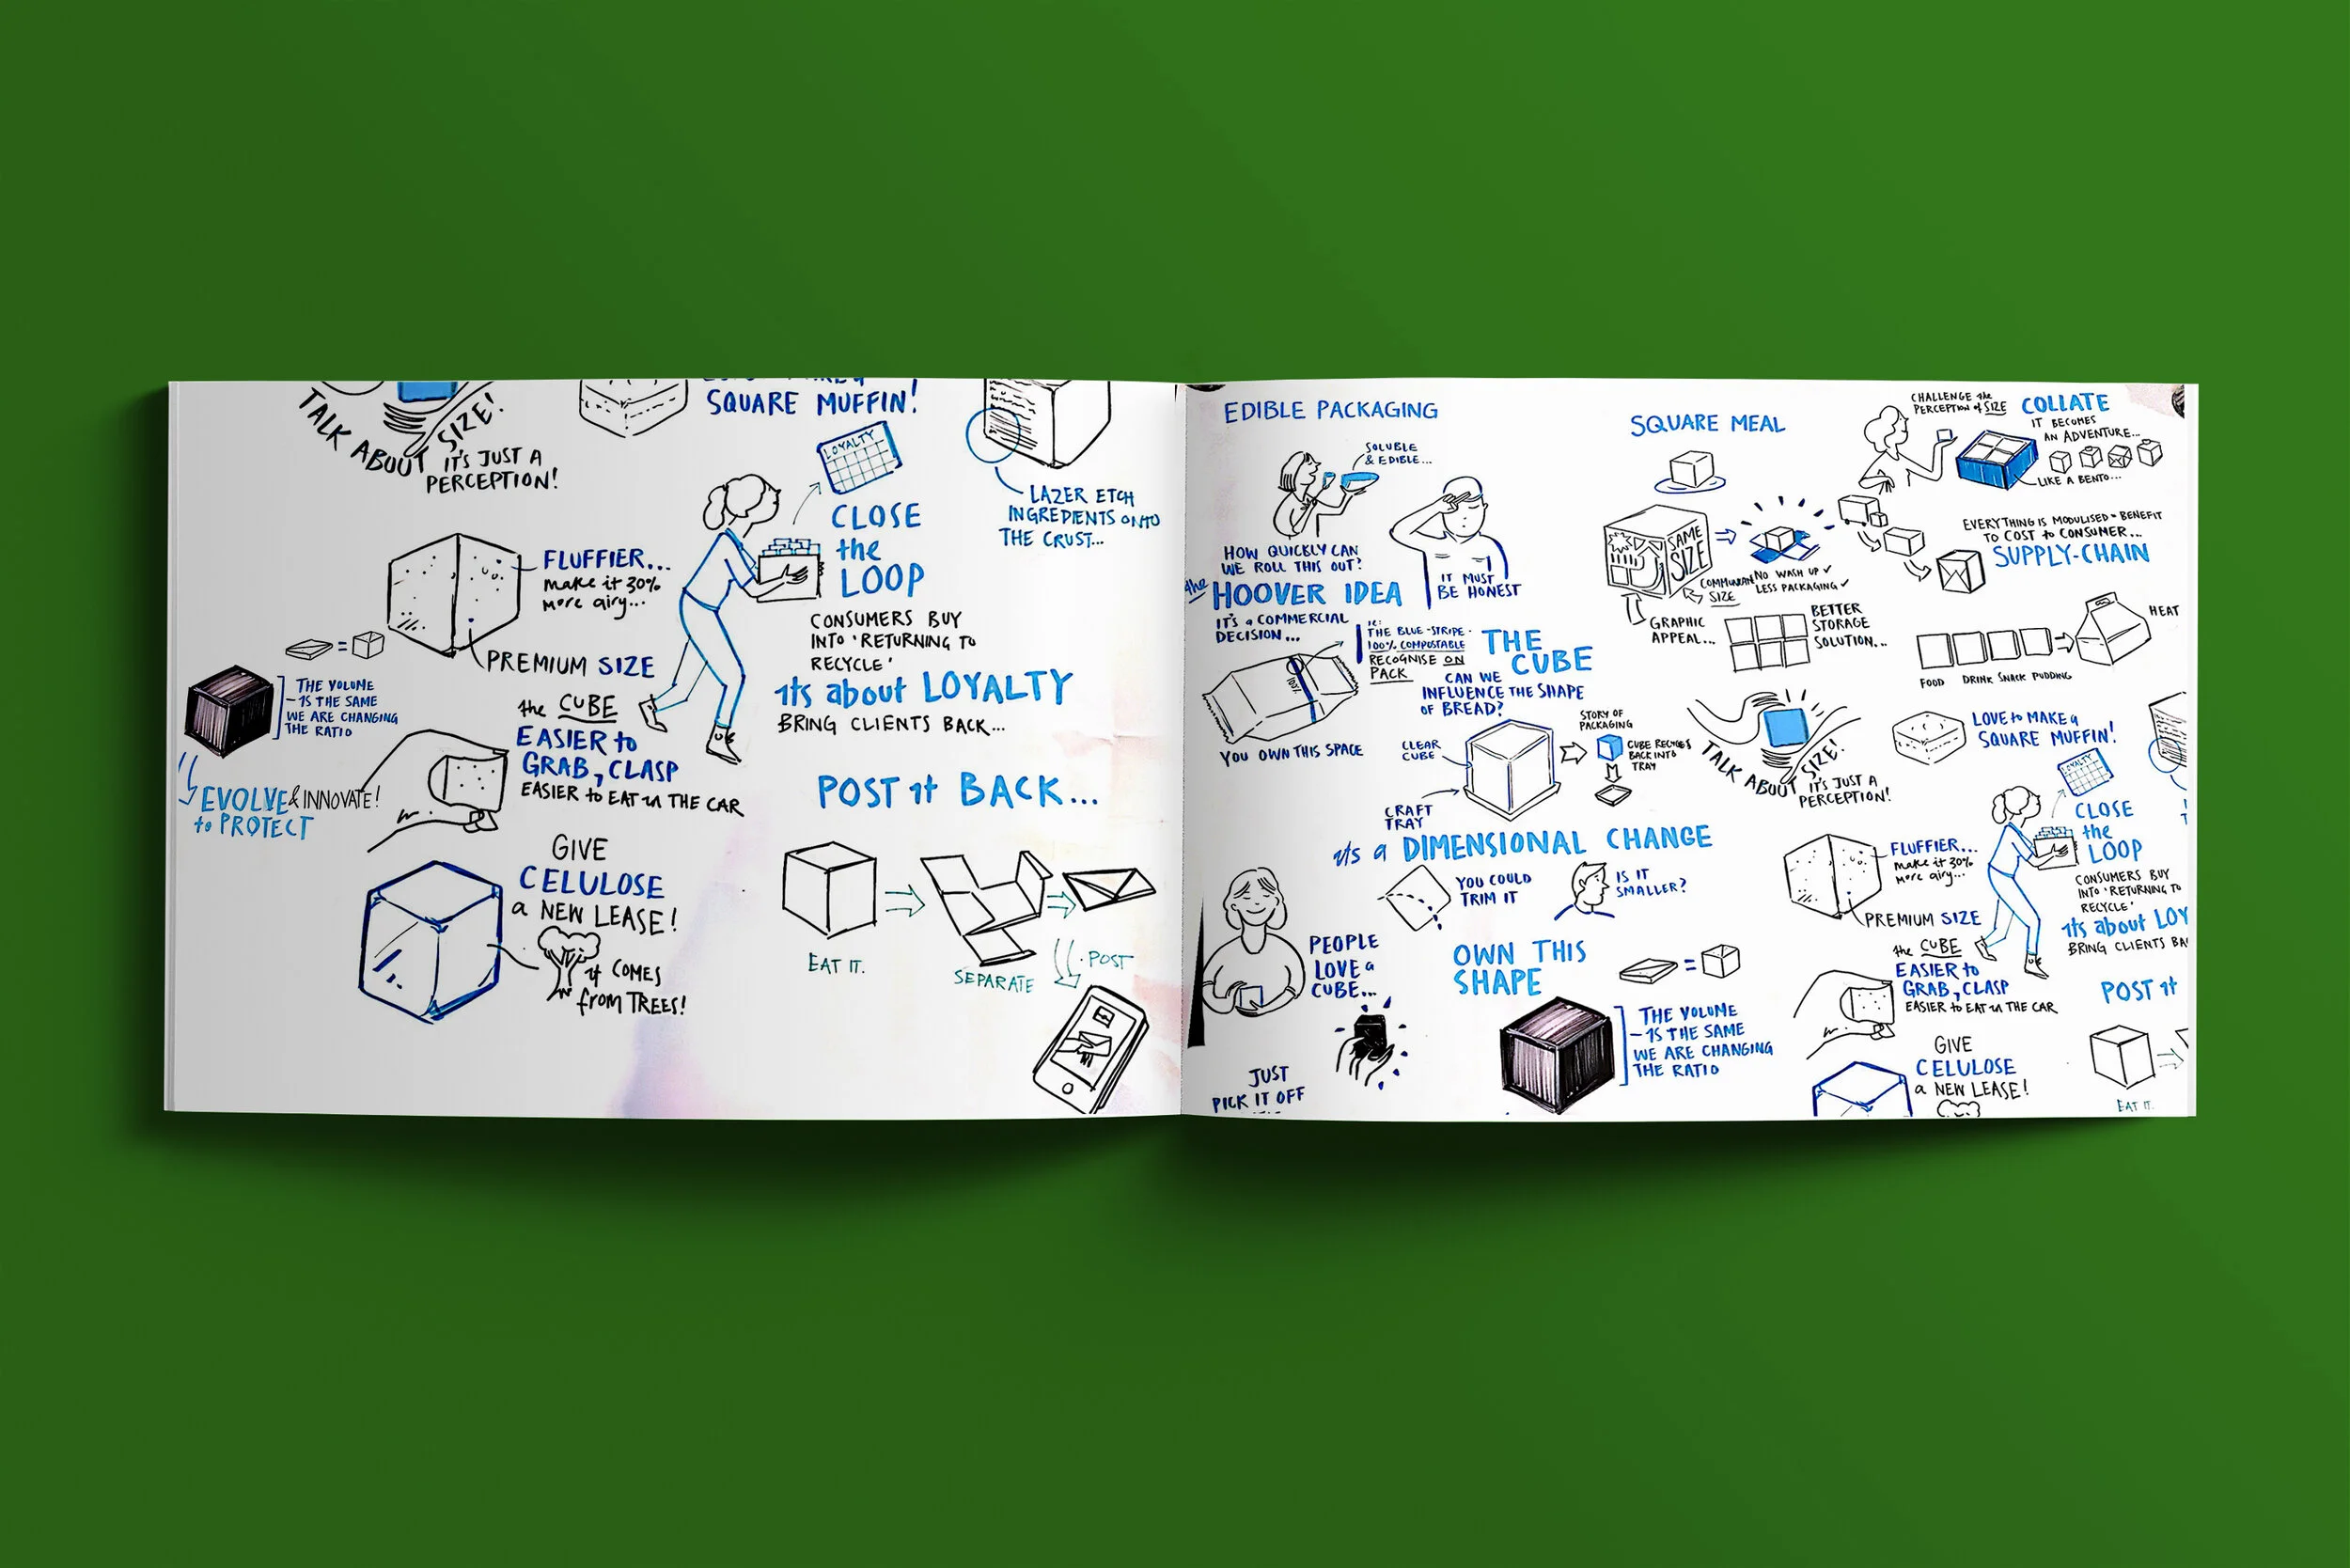 TALK ABOUT SIZE!
IT'S JUST A
PERCEPTION!
SQUARE MUFFIN!
LAZER ETCH
INGREDIENTS ONTO
THE CRUST...
LOYALTY
CLOSE
the
LOOP
CONSUMERS BUY
INTO 'RETURNING TO
RECYCLE'
its about LOYALTY
BRING CLIENTS BACK...
FLUFFIER...
make it 30%
more airy...
PREMIUM SIZE
=
THE VOLUME
-IS THE SAME
WE ARE CHANGING
THE RATIO
EVOLVE & INNOVATE!
to PROTECT
the CUBE
EASIER to
GRAB, CLASP
EASIER to EAT in THE CAR
GIVE
CELULOSE
a NEW LEASE!
it COMES
from TREES!
POST it BACK...
EAT IT.
SEPARATE
POST
EDIBLE PACKAGING
SOLUBLE
& EDIBLE...
HOW QUICKLY CAN
WE ROLL THIS OUT?
IT MUST
BE HONEST
the HOOVER IDEA
IT'S a COMMERCIAL
DECISION...
ie:
THE BLUE-STRIPE-
100% COMPOSTABLE
RECOGNISE ON
PACK
100%
YOU OWN THIS SPACE
THE
CUBE
CAN WE
INFLUENCE THE SHAPE
OF BREAD?
CLEAR
CUBE
CRAFT
TRAY
STORY OF
PACKAGING
CUBE RECYCLES
BACK INTO
TRAY
its a DIMENSIONAL CHANGE
YOU COULD
TRIM IT
IS IT
SMALLER?
PEOPLE
LOVE a
CUBE...
JUST
PICK IT OFF
OWN THIS
SHAPE
=
THE VOLUME
-IS THE SAME
WE ARE CHANGING
THE RATIO
SQUARE MEAL
SAME
SIZE
SIZE
GRAPHIC
APPEAL...
NO WASH UP ✓
LESS PACKAGING ✓
BETTER
STORAGE
SOLUTION...
CHALLENGE the
PERCEPTION of SIZE
COLLATE
IT BECOMES
AN ADVENTURE...
LIKE A BENTO...
EVERYTHING IS MODULISED = BENEFIT
TO COST to CONSUMER...
SUPPLY-CHAIN
HEAT
FOOD DRINK SNACK PUDDING
TALK ABOUT SIZE!
IT'S JUST A
PERCEPTION!
LOVE to MAKE a
SQUARE MUFFIN!
LOYALTY
CLOSE
the
LOOP
CONSUMERS BUY
INTO 'RETURNING TO
RECYCLE'
its about LOY
BRING CLIENTS BA
FLUFFIER...
make it 30%
more airy...
PREMIUM SIZE
the CUBE
EASIER to
GRAB, CLASP
EASIER to EAT in THE CAR
GIVE
CELULOSE
a NEW LEASE!
POST it
EAT IT.